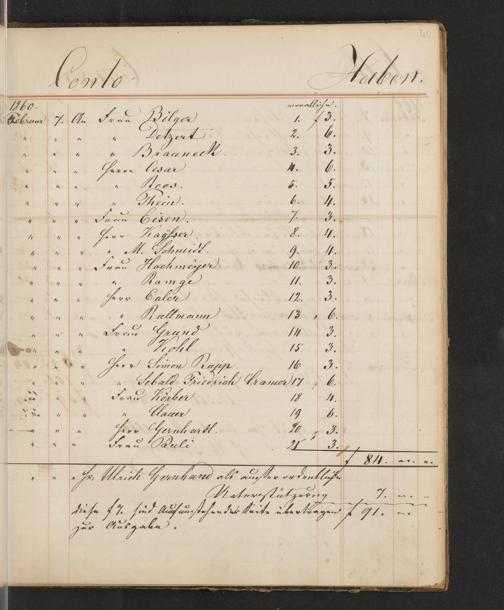 Conto Haben.
1860. monatliche.
Februar 7. An Frau Bilger 1. f 3.
" " " " Detzert 2. 6.
" " " " Brauneck. 3. 3.
" " " Herrn Cesar 4. 6.
" " " " Roos. 5. 5.
" " " " Thein. 6. 4.
" " " Frau Eisen. 7. 3.
" " " Herr Kayser 8. 4.
" " " " M. Schmidt. 9. 4.
" " " Frau Hochmeyer 10. 3.
" " " " Ramge 11. 3.
" " " Herr Euler 12. 3.
" " " " Rallmann 13 " 6.
" " " Frau Grund 14 3.
" " " " Kohl 15 3.
" " " Herr Simon Rupp 16 3.
" " " " Sebald Friedrich Cramer 17 " 6.
" " " Frau Körber 18 4.
" " " " Clauer 19 6.
" " " Herr Gernhardt. 20 " 3.
" " " Frau Pauli 21 3.
f 84. " "
" " Hr. Ulrich Gernhard als außerordentliche
Unterstützung 7. " "
diese f 7. sind Seite übertragen f 91. "
zur Ausgabe.